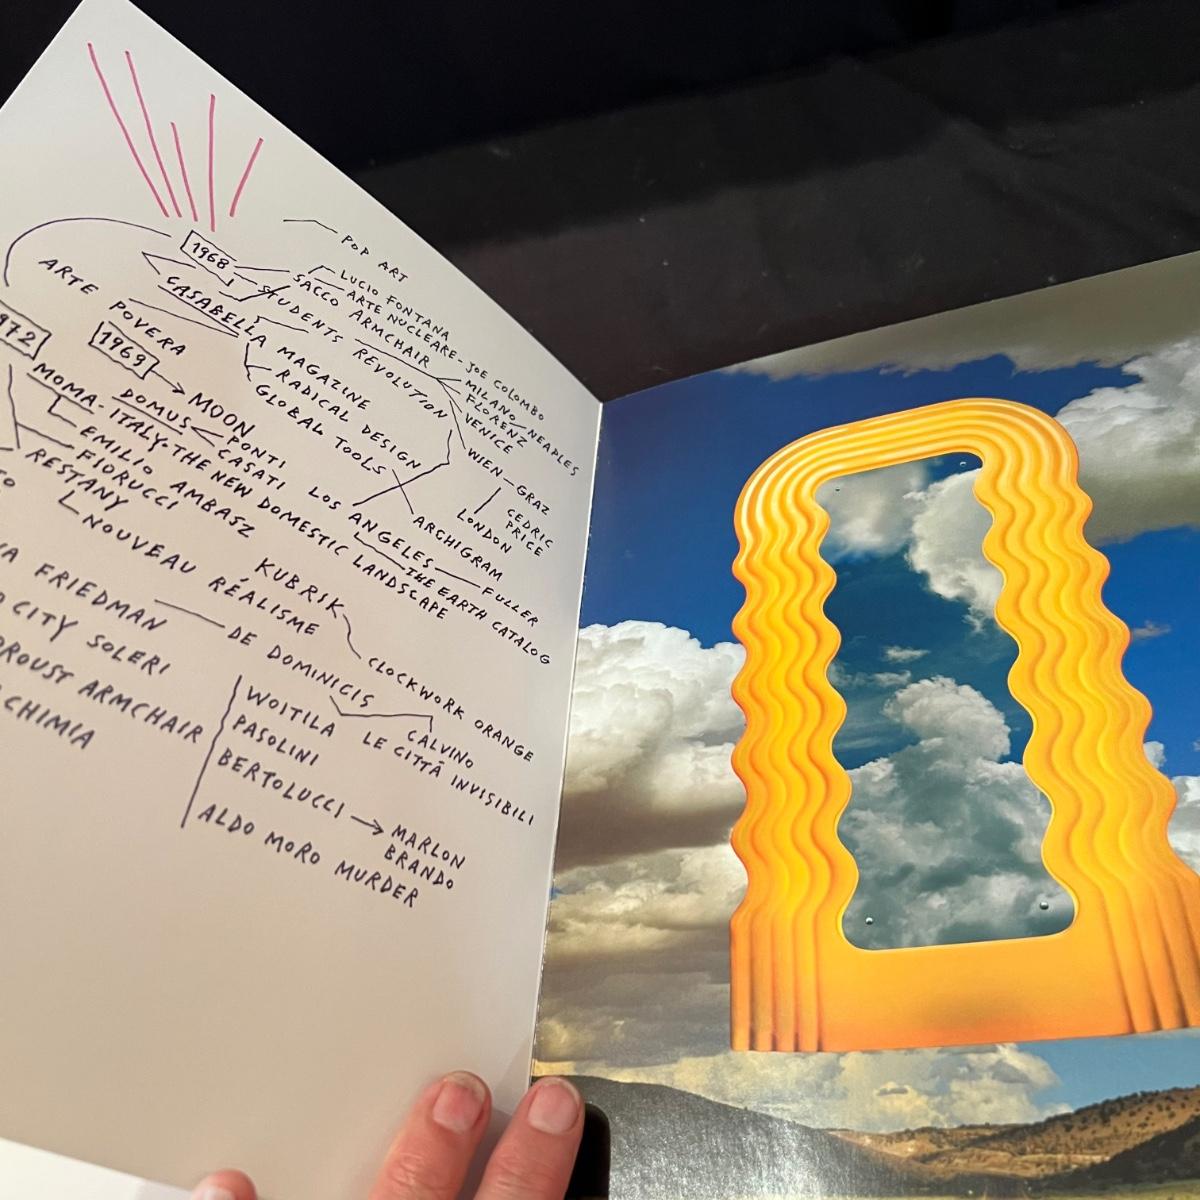 POP ART
1968
LUCIO FONTANA
ARTE NUCLEARE - JOE COLOMBO
SACCO ARMCHAIR
STUDENTS REVOLUTION
MILANO
FLORENZ
NEAPLES
VENICE
CASABELLA MAGAZINE
RADICAL DESIGN
GLOBAL TOOLS
WIEN - GRAZ
LONDON
CEDRIC
PRICE
ARCHIGRAM
ARTE POVERA
1969
MOON
DOMUS
PONTI
CASATI
LOS ANGELES
FULLER
THE EARTH CATALOG
972
MOMA - ITALY - THE NEW DOMESTIC LANDSCAPE
EMILIO AMBASZ
FIORUCCI
RESTANY
NOUVEAU RÉALISME
KUBRIK
CLOCKWORK ORANGE
FRIEDMAN
DE DOMINICIS
CALVINO
LE CITTÀ INVISIBILI
CITY SOLERI
PROUST ARMCHAIR
CHIMIA
WOITILA
PASOLINI
BERTOLUCCI
MARLON
BRANDO
ALDO MORO MURDER